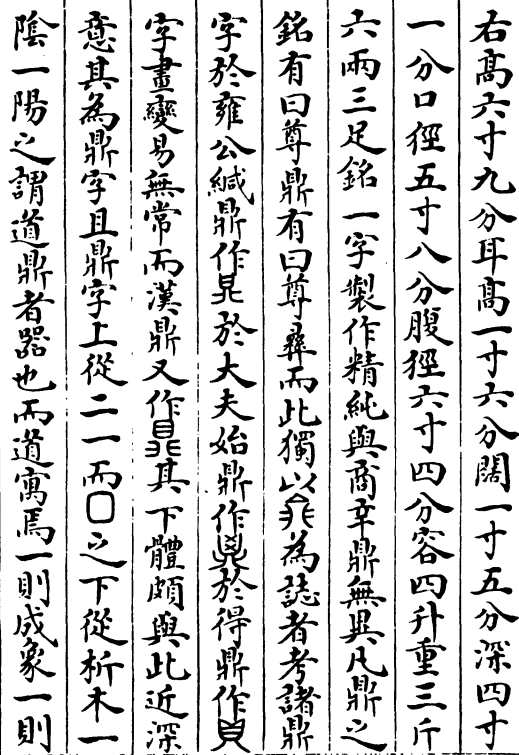 右髙六寸九分耳髙一寸六分闊一寸五分深四寸
一分口徑五寸八分腹徑六寸四分容四升重三斤
六兩三足銘一字製作精純與商辛鼎無異凡鼎之
銘有曰尊鼎有曰尊彛而此獨以為誌者考諸鼎
字於雍公緘鼎作於大夫始鼎作於得鼎作
字畫變易無常而漢鼎又作其下體頗與此近深
意其為鼎字且鼎字上從二一而囗之下從析木一
陰一陽之謂道鼎者器也而道寓焉一則成象一則